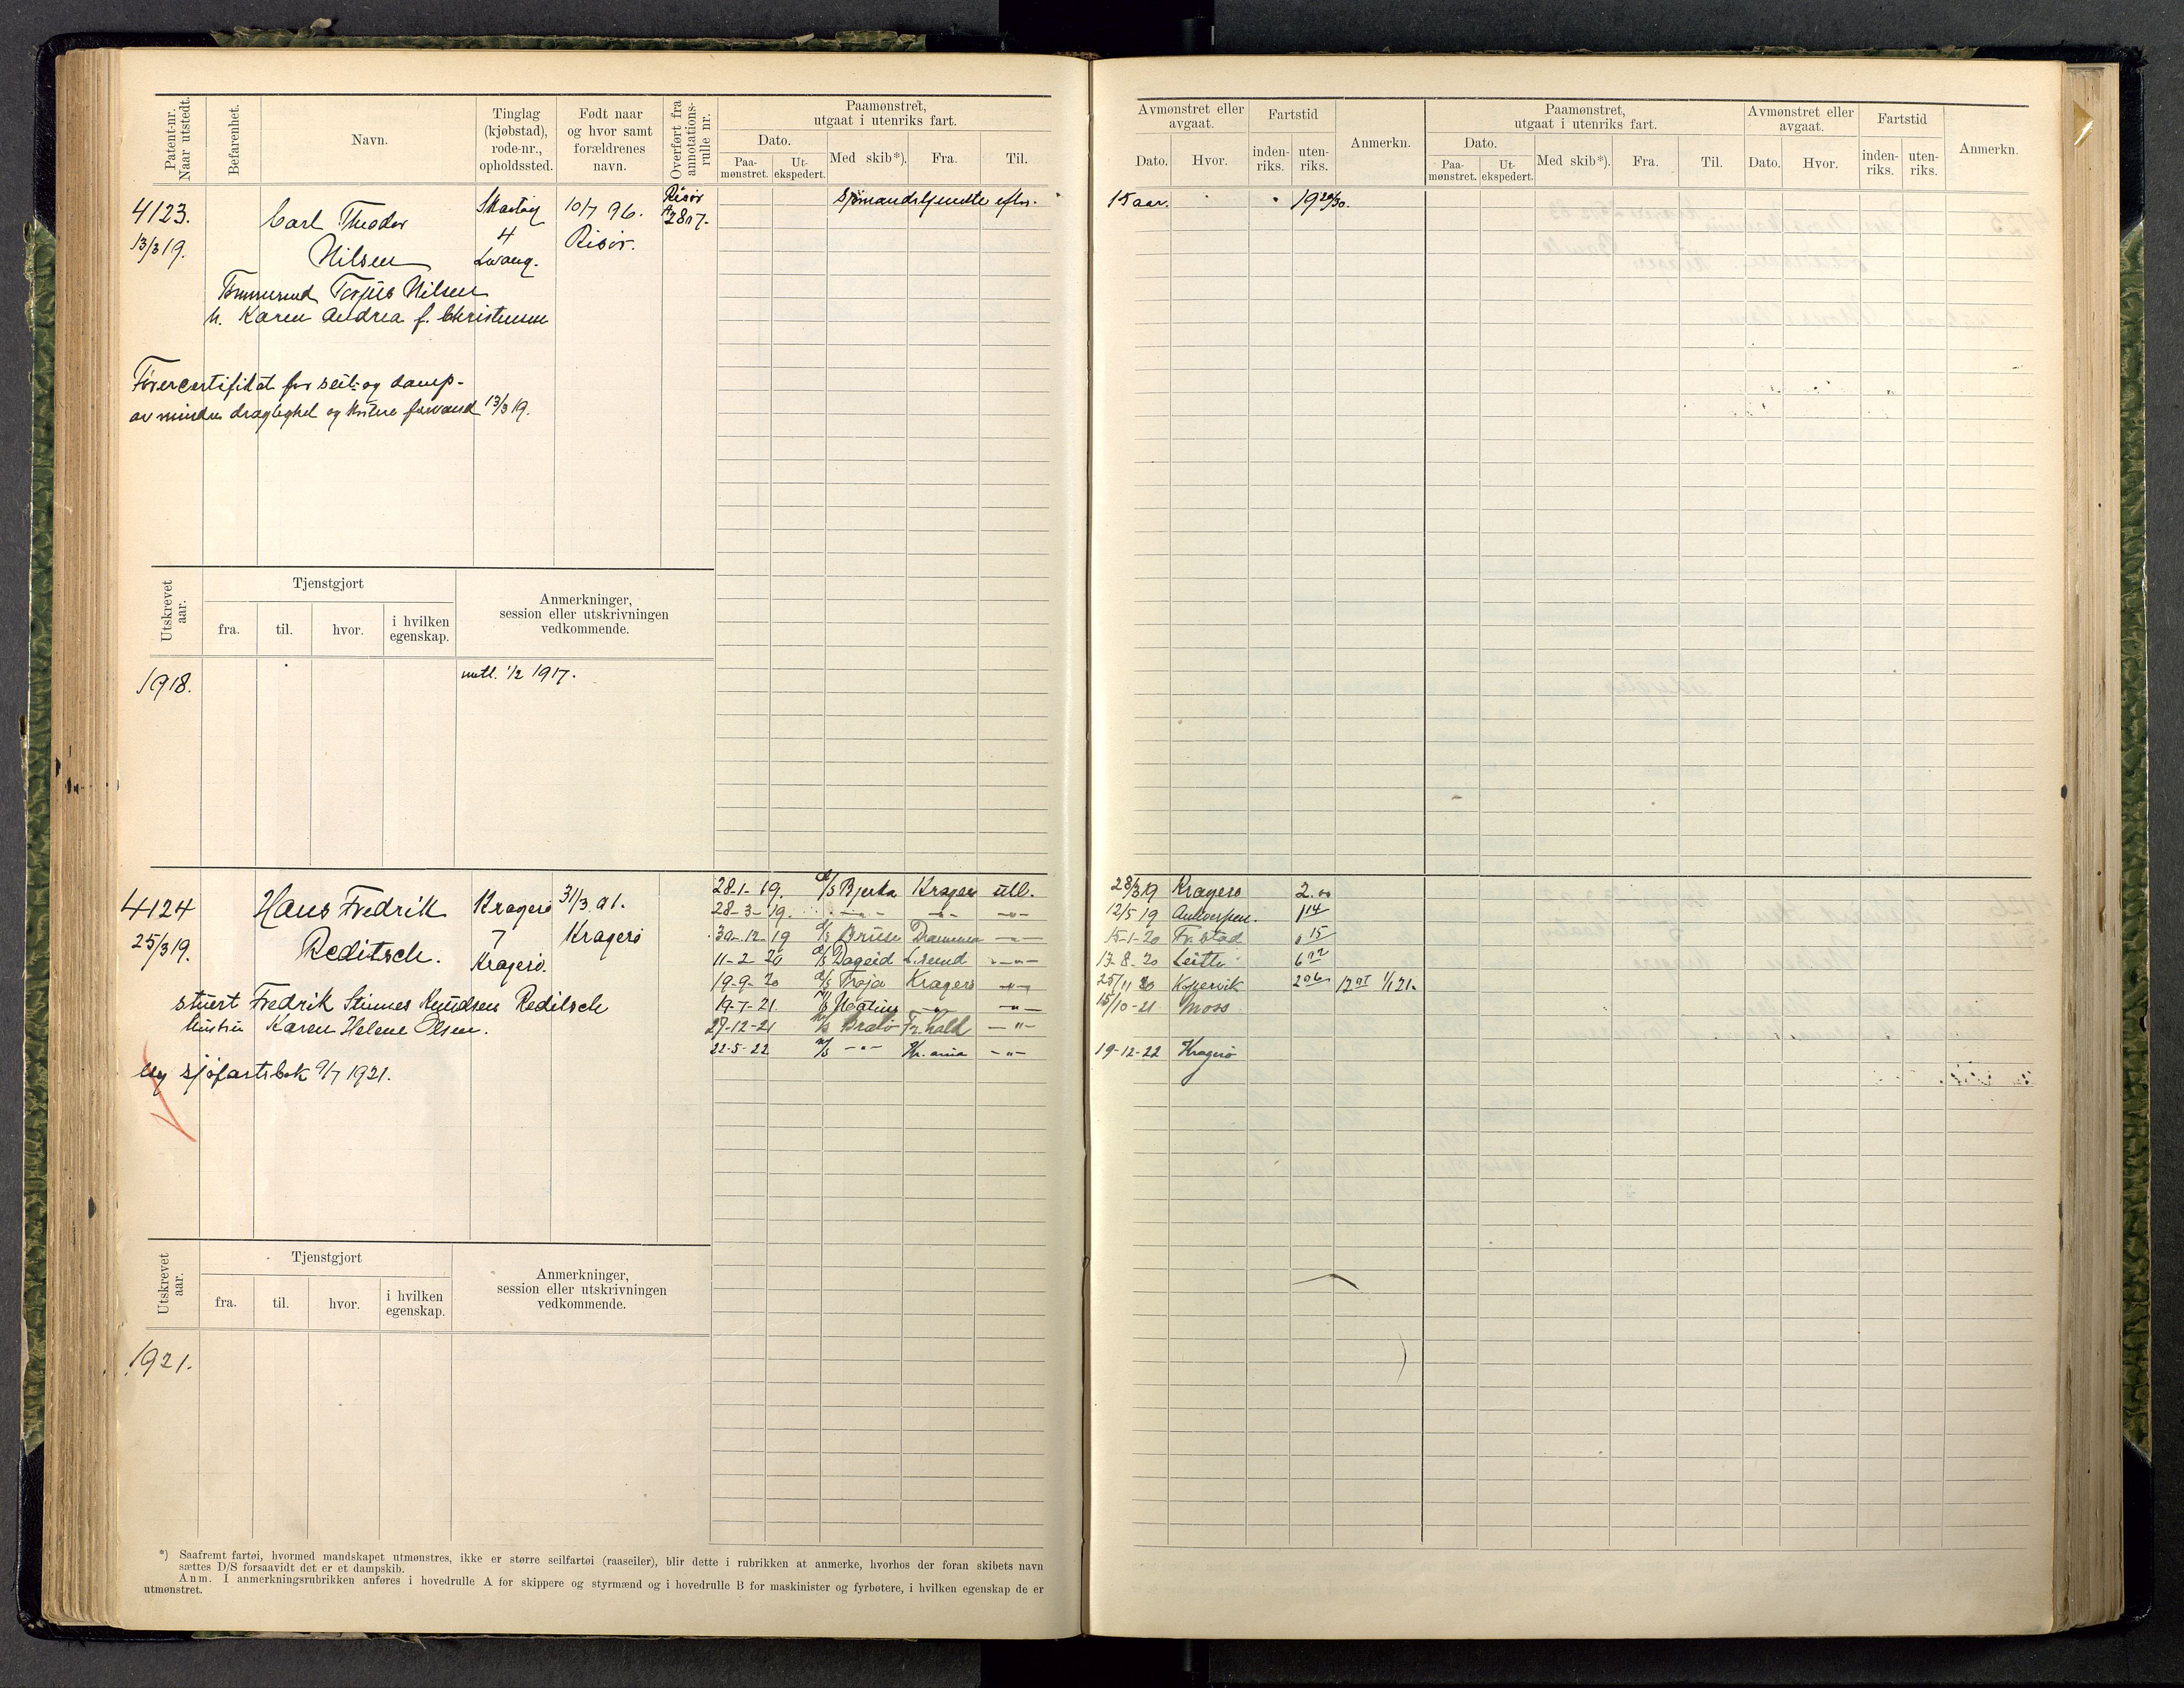 Patent-nr. Naar utstedt.
Befarenhet.
Navn.
Tinglag (kjøbstad), rode-nr., opholdssted.
Født naar og hvor samt forældrenes navn.
Overført fra annotations-rulle nr.
Paamønstret, utgaat i utenriks fart.
Dato.
Paa-mønstret.
Ut-ekspedert.
Med skib*).
Fra.
Til.
Avmønstret eller avgaat.
Dato.
Hvor.
Fartstid
inden-riks.
uten-riks.
Anmerkn.
Paamønstret, utgaat i utenriks fart.
Dato.
Paa-mønstret.
Ut-ekspedert.
Med skib*).
Fra.
Til.
Avmønstret eller avgaat.
Dato.
Hvor.
Fartstid
inden-riks.
uten-riks.
Anmerkn.
4123.
13/3 19.
Carl Theodor
Nilsen
4
10/7 96.
Risør.
Risør
2817.
15 aar.
Torjus Nilsen
h. Karen Andrea f. Christensen
Førercertifikat for seil- og damp-
av mindre drægtighet og kortere farvand 13/3 19.
Utskrevet aar.
Tjenstgjort
fra.
til.
hvor.
i hvilken egenskap.
Anmerkninger, session eller utskrivningen vedkommende.
1918.
1/2 1917.
4124
25/3 19.
Hans Fredrik
Reditsch.
Kragerø
7
Kragerø.
31/3 01.
Kragerø
stuert Fredrik Stinnes Knudsen Reditsch
hustru Karen Helene Olsen.
Ny sjøfartsbok 9/7 1921.
28-1-19. d/s Bjerka Kragerø utl. 28/3 19 Kragerø 2.00
28-3-19. -"- -"- -"- 12/5 19 Antwerpen. 1 14
30-12-19 d/s Bruse Drammen -"- 15-1-20 Fr.stad 0 15
11-2-20 d/s Dageid L.sund -"- 17-8-20 Leith
19-9-20 d/s Troja Kragerø -"- 25/11 20 Kopervik 2 06 1/1 21.
19-7-21 -"- -"- 15/10-21 Moss
27-12-21 Fr.hald -"-
22-5-22 m/s -"- Kr.ania -"- 19-12-22 Kragerø
Utskrevet aar.
Tjenstgjort
fra.
til.
hvor.
i hvilken egenskap.
Anmerkninger, session eller utskrivningen vedkommende.
1921.
*) Saafremt fartøi, hvormed mandskapet utmønstres, ikke er større seilfartøi (raaseiler), blir dette i rubrikken at anmerke, hvorhos der foran skibets navn
sættes D/S forsaavidt det er et dampskib.
Anm. I anmerkningsrubrikken anføres i hovedrulle A for skippere og styrmænd og i hovedrulle B for maskinister og fyrbøtere, i hvilken egenskap de er
utmønstret.